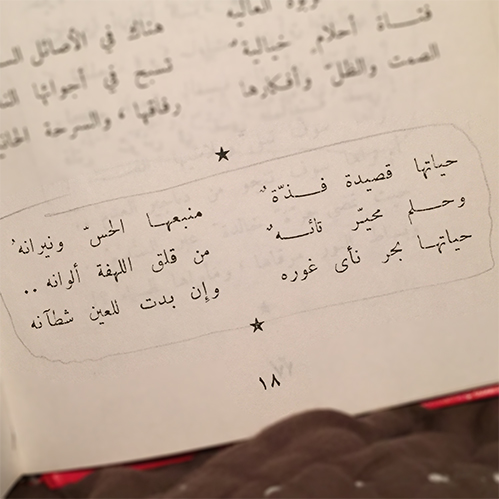 ربوة العاليه
فتاة أحلام خيالية هناك في الأصائل
الصمت والظل وأفكارها تسبح في أجوائها
رفاقها، والسرحة
حياتها قصيدة فذّةٌ منبعها الحسّ ونيرانهُ
وحلم محيّر تائهٌ من قلق اللهفة ألوانه ..
حياتها بحر نأى غوره وإن بدت للعين شطآنه
١٨